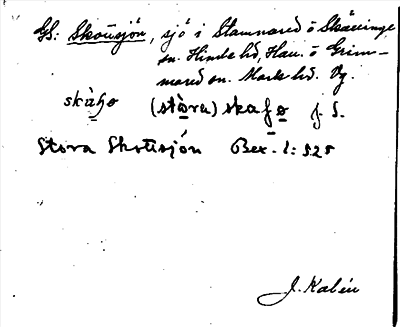 GS. Skottsjön, sjö i Stamnared o Skällinge
sn. Himle hd, Hall. o Grim-
mared sn. Marks hd. Vg.
skàƕo (stora) skaƕo f. S.
Stora Skottsjön Bex. l: 525
J. Kalén